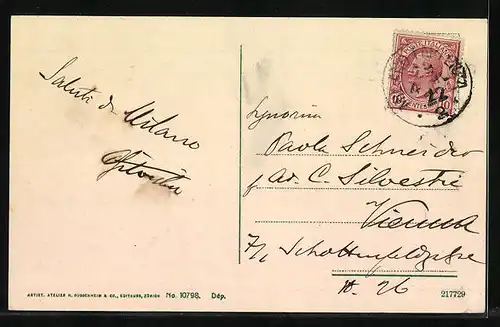 Saluti da
Milano
POSTE ITALIANE
22
Signorina
Paola Schneider
p. ad. C. Silvestri
Vienna
7/1 Schottenfeldgasse
N. 26
ARTIST. ATELIER H. GUGGENHEIM & CO., EDITEURS, ZÜRICH No. 10798. Dép.
217729